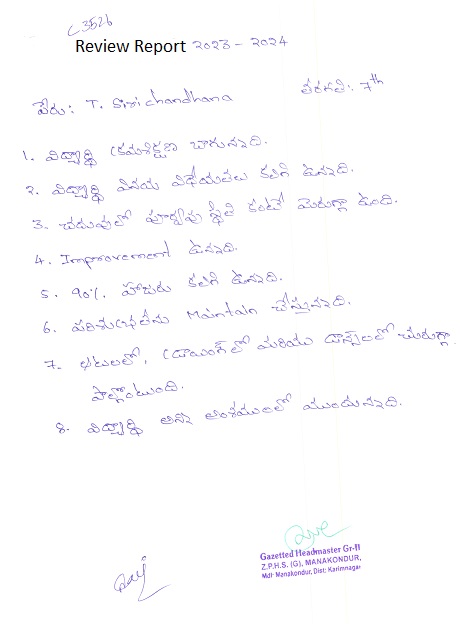 C3526
Review Report 2023 - 2024
పేరు: T. Siri chandhana
తరగతి: 7th
1. విద్యార్థి క్రమశిక్షణ బాగున్నది.
2. విద్యార్థి వినయ విధేయతలు కలిగి ఉన్నది.
3. చదువులో పూర్వపు స్థితి కంటే మెరుగ్గా ఉంది.
4. Improvement ఉన్నది.
5. 90% హాజరు కలిగి ఉన్నది.
6. పరిశుభ్రతను Maintain చేస్తున్నది.
7. ఆటలలో, డ్రాయింగ్ లో మరియు డాన్స్ లలో చురుగ్గా
పాల్గొంటుంది.
8. విద్యార్థి అన్ని అంశములలో ముందున్నది.
Gazetted Headmaster Gr-II
Z.P.H.S. (G), MANAKONDUR,
Mdl: Manakondur, Dist: Karimnagar